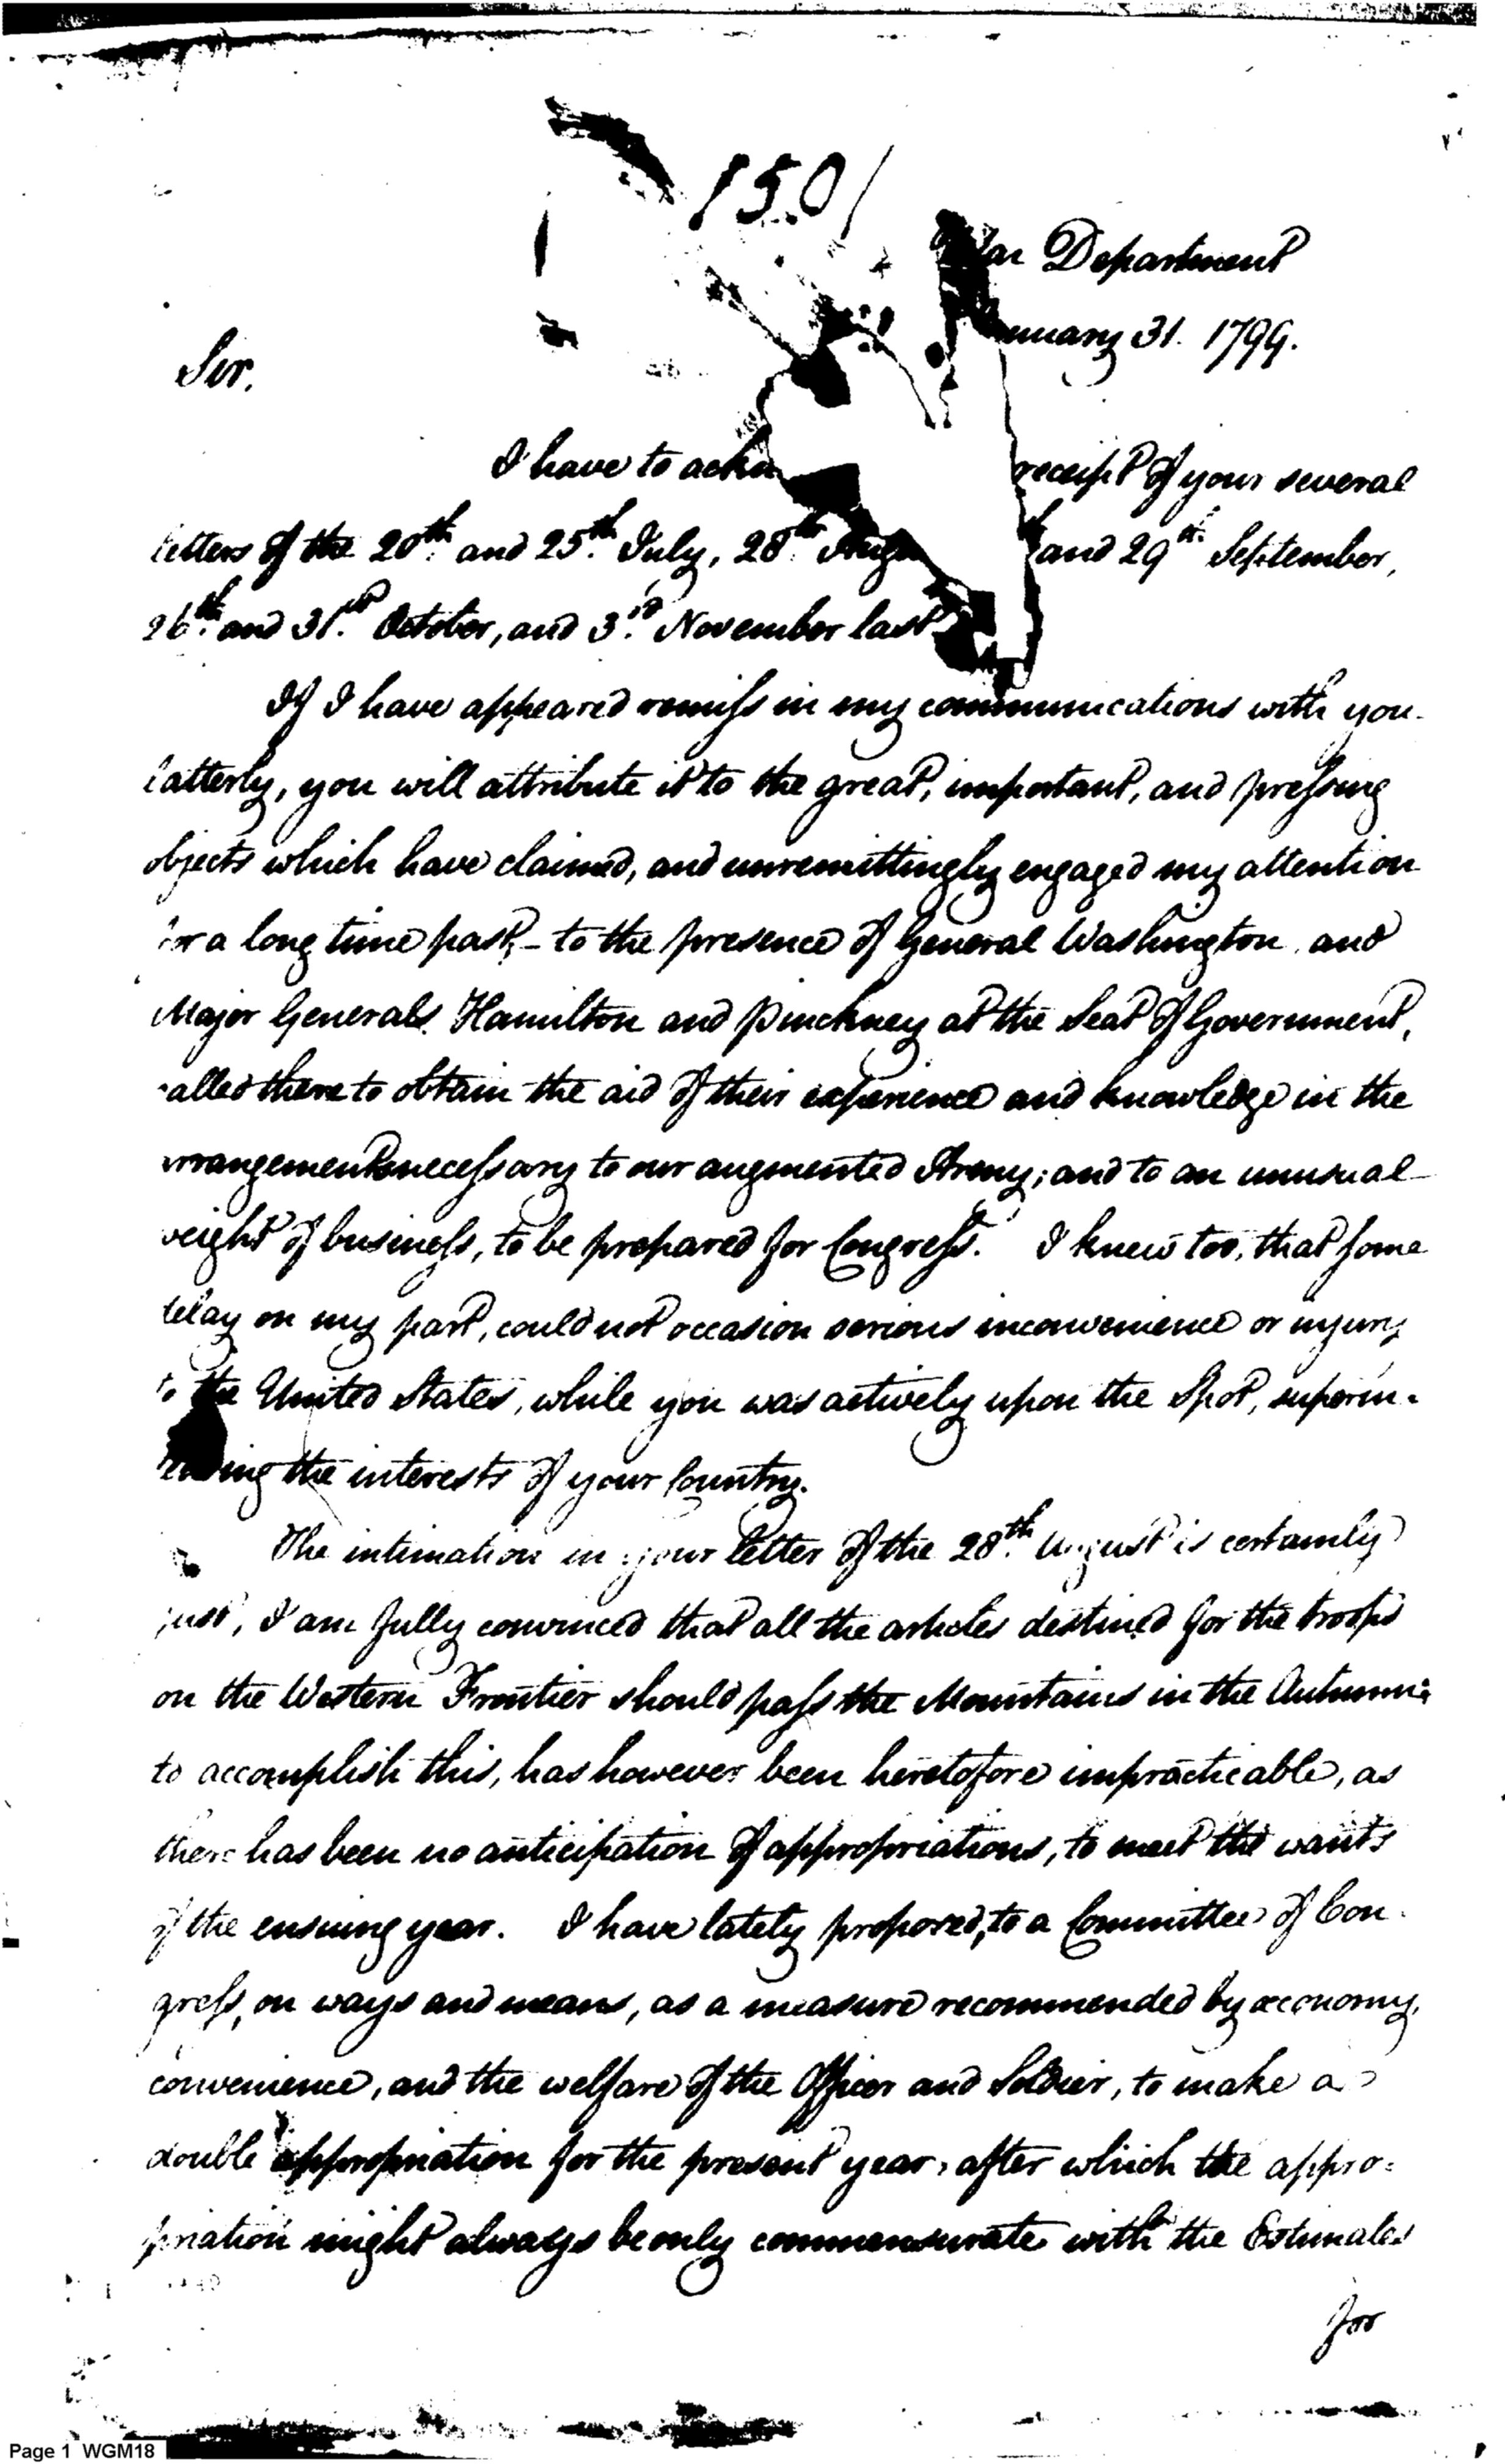 150
War Department
January 31. 1799.
Sir.
I have to receipt of your several
letters of the 20th. and 25th. July, 28th and 29th. September,
26th. and 31st. October, and 3rd. November last
If I have appeared remiss in my communications with you
latterly, you will attribute it to the great, important, and pressing
objects which have claimed, and unremittingly engaged my attention
for a long time past, - to the presence of General Washington and
Major Generals Hamilton and Pinckney at the Seat of Government,
called there to obtain the aid of their experience and knowledge in the
arrangements necessary to our augmented Army; and to an unusual
weight of business, to be prepared for Congress. I knew too, that some
delay on my part, could not occasion serious inconvenience or injury
to the United States, while you was actively upon the Spot, superin-
tending the interests of your Country.
The intimation in your letter of the 28th. August is certainly
just, I am fully convinced that all the articles destined for the troops
on the Western Frontier should pass the Mountains in the Autumn;
to accomplish this, has however been heretofore impracticable, as
there has been no anticipation of appropriations, to meet the wants
of the ensuing year. I have lately proposed, to a Committee of Con-
gress, on ways and means, as a measure recommended by œconomy,
convenience, and the welfare of the Officer and Soldier, to make a
double appropriation for the present year, after which the appro-
priation might always be only commensurate with the Estimates
for
Page 1 WGM18